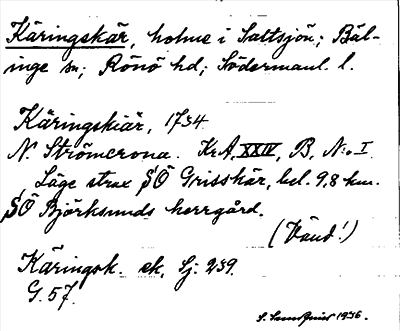 Käringskär, holme i Saltsjön; Bäl-
inge sn; Rönö hd; Södermanl. l.
Käringskiär, 1734
N. Strömcrona. KrA, XXIV, B, N:o I.
Läge strax SÖ Grisskär, bel. 9,8 km.
SÖ Björksunds herrgård.
(Vänd!)
Käringsk. ek, Sj: 239.
G. 57.
1936.